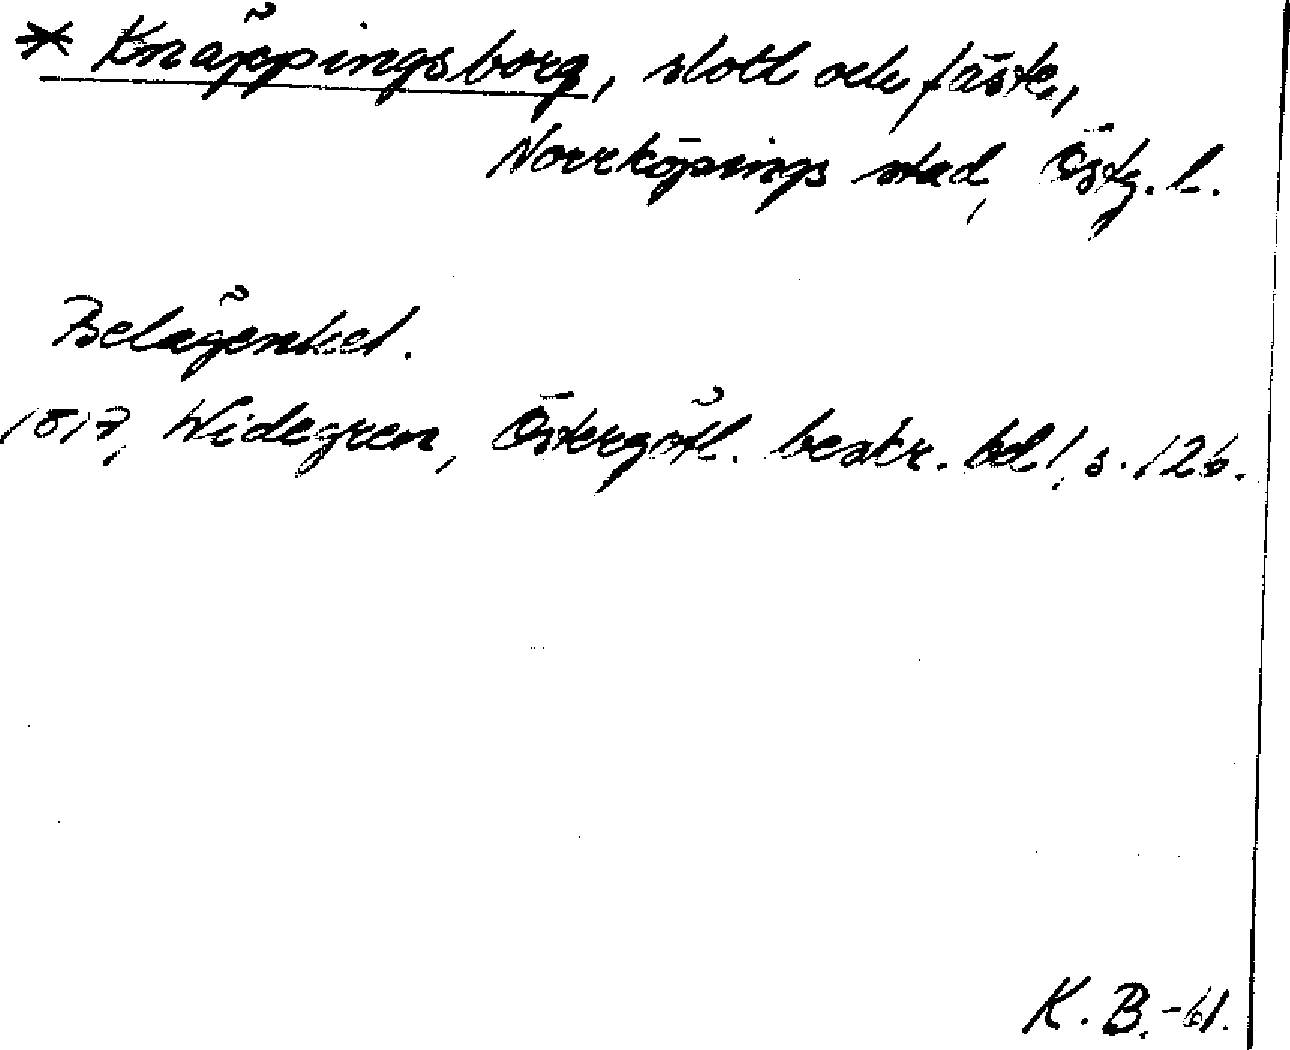 * Knäppingsborg, slott och fäste,
Norrköpings stad, Östg. l.
Belägenhet.
1817, Widegren, Östergötl. beskr. bd 1, s. 126.
K. B. -61.